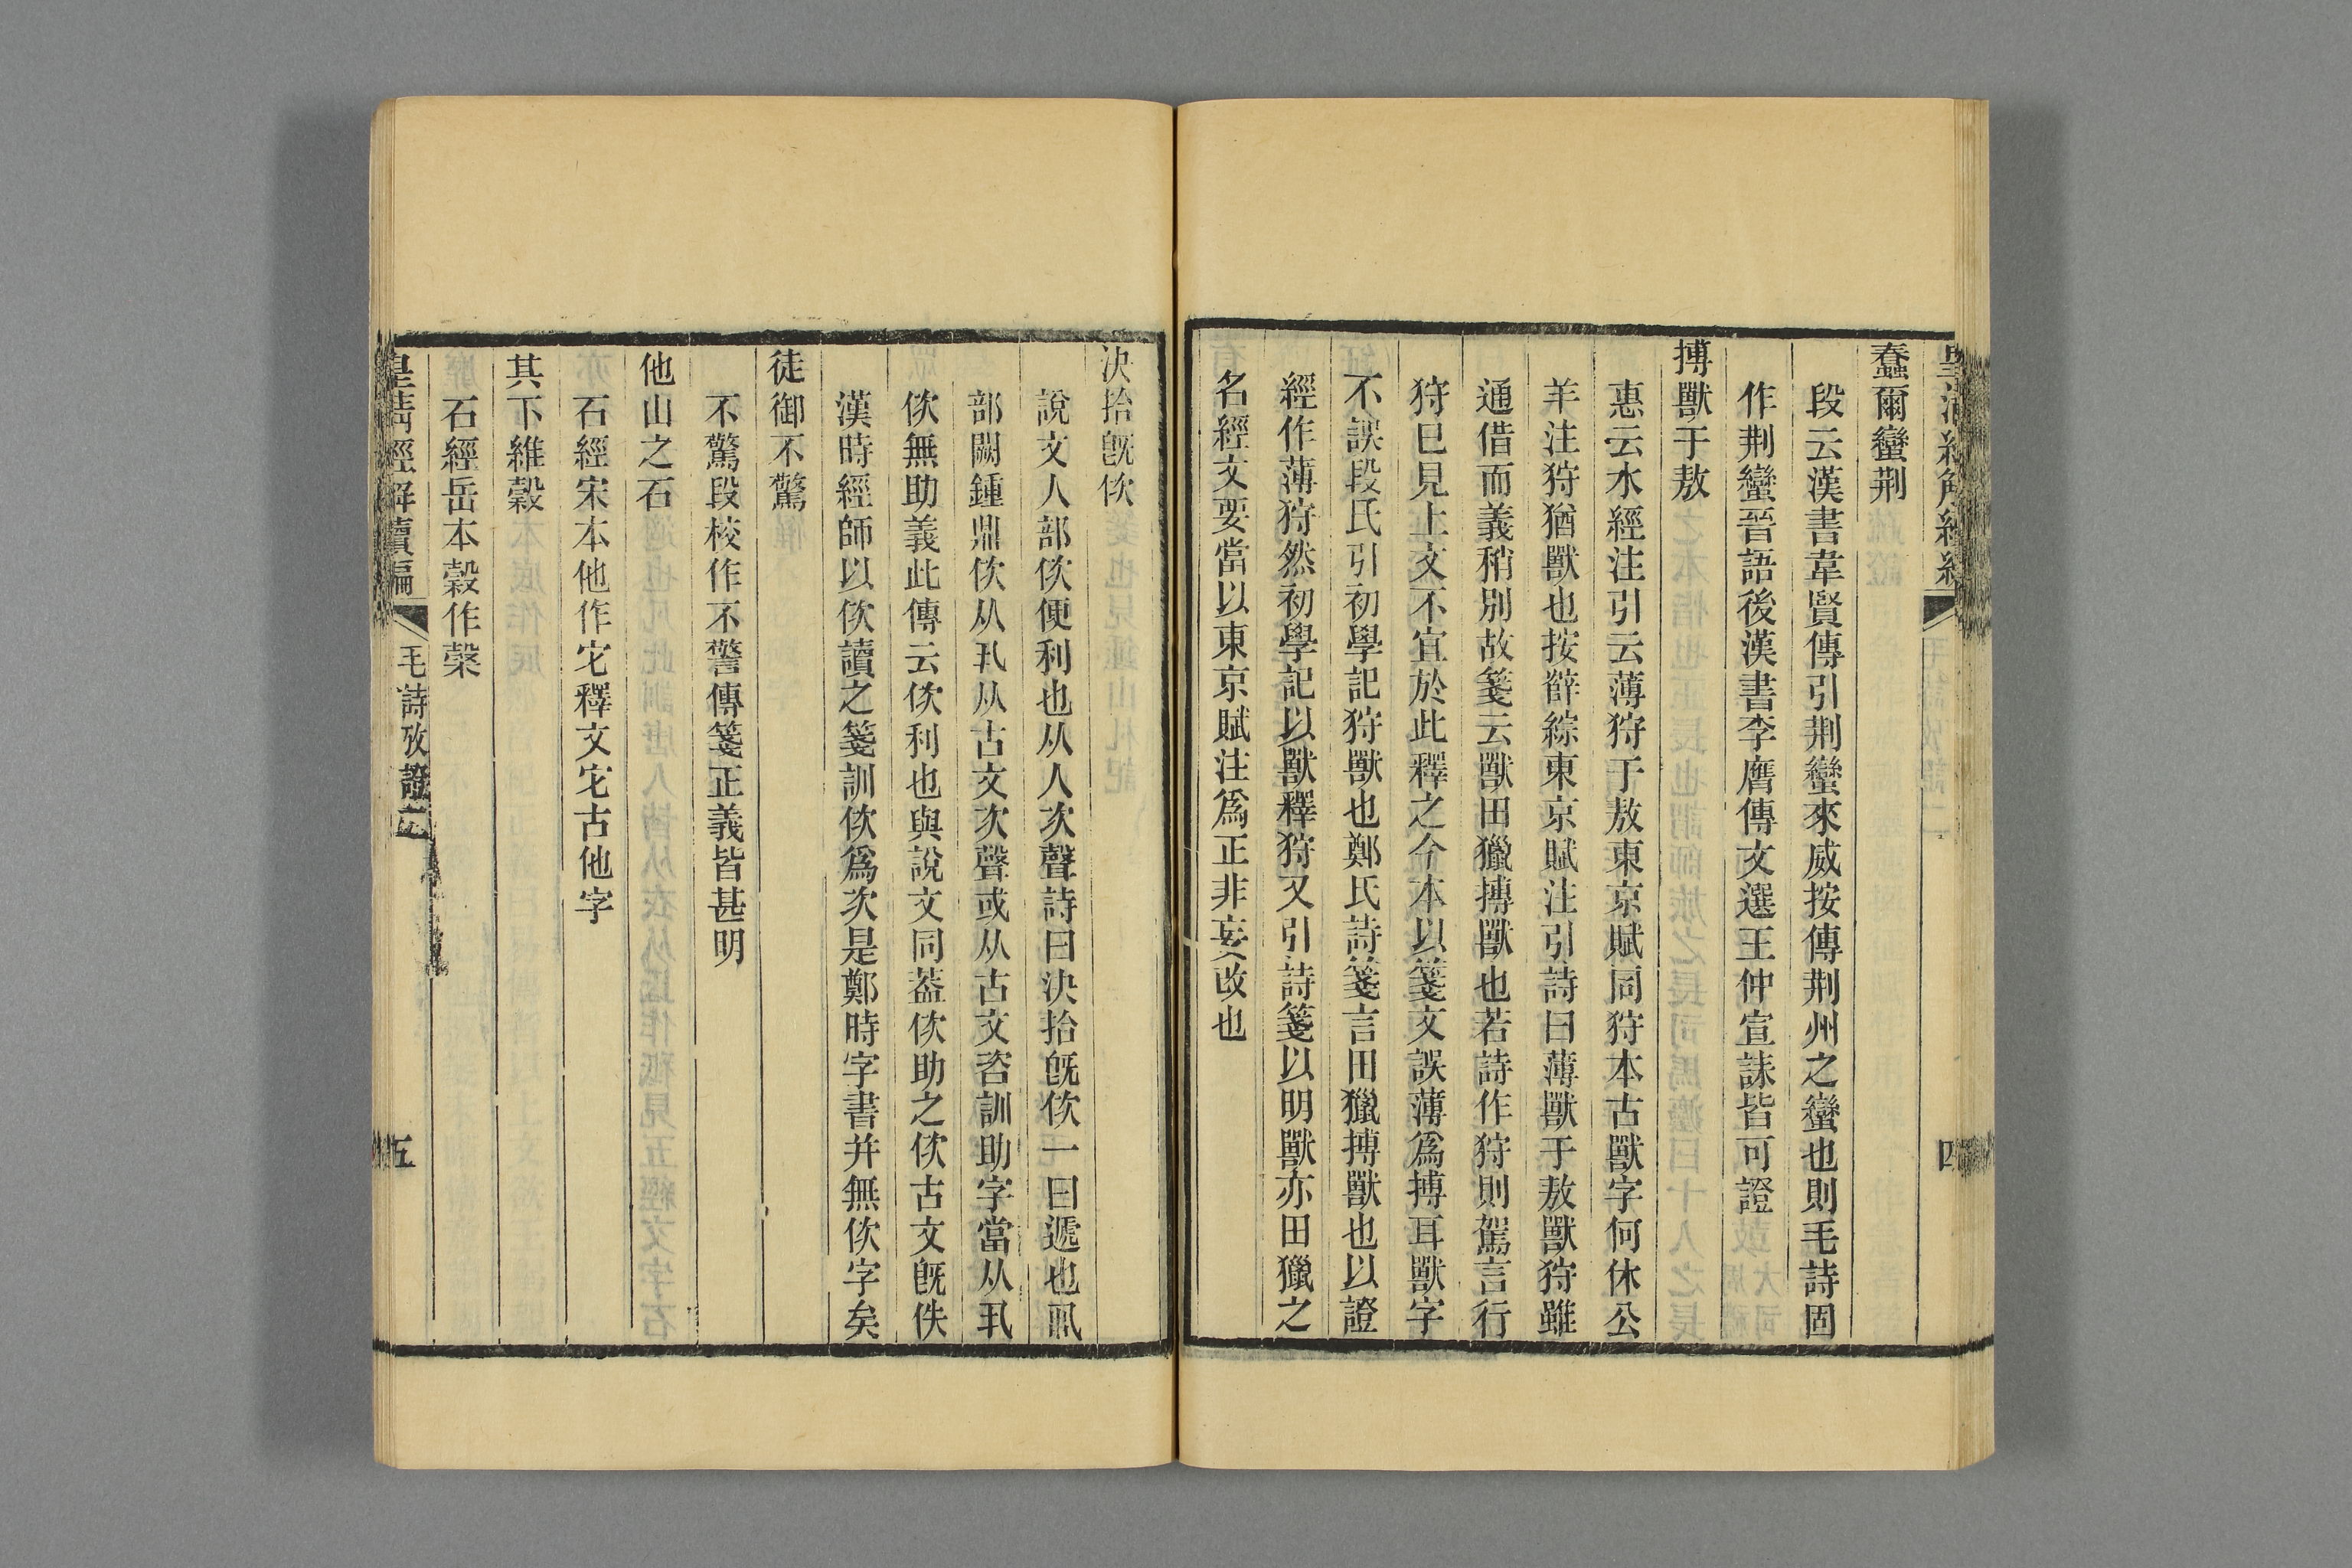 蠢爾蠻荆
段云漢書韋賢傳引荆蠻來威按傳荆州之蠻也則毛詩固
作荆蠻晉語後漢書李膺傳文選王仲宣誄皆可證
搏獸于敖
惠云水經注引云薄狩于敖東京賦同狩本古獸字何休公
羊注狩猶獸也按薛綜東京賦注引詩曰薄獸于敖獸狩雖
通借而義稍別故箋云獸田獵搏獸也若詩作狩則駕言行
狩巳見上文不宜於此釋之今本以箋文誤薄爲搏耳獸字
不誤段氏引初學記狩獸也鄭氏詩箋言田獵搏獸也以證
經作薄狩然初學記以獸釋狩又引詩箋以明獸亦田獵之
名經文要當以東京賦注爲正非妄改也
決拾旣佽
說文人部佽便利也从人次聲詩曰決拾旣佽一曰遞也丮
部闕鍾鼎佽从丮从古文次聲或从古文咨訓助字當从丮
佽無助義此傳云佽利也與說文同葢佽助之佽古文旣佚
漢時經師以佽讀之箋訓佽爲次是鄭時字書并無佽字矣
徒御不驚
不驚段校作不警傳箋正義皆甚明
他山之石
石經宋本他作它釋文它古他字
其下維穀
石經岳本穀作榖
皇淸經解續編
毛詩攷證二
五
四